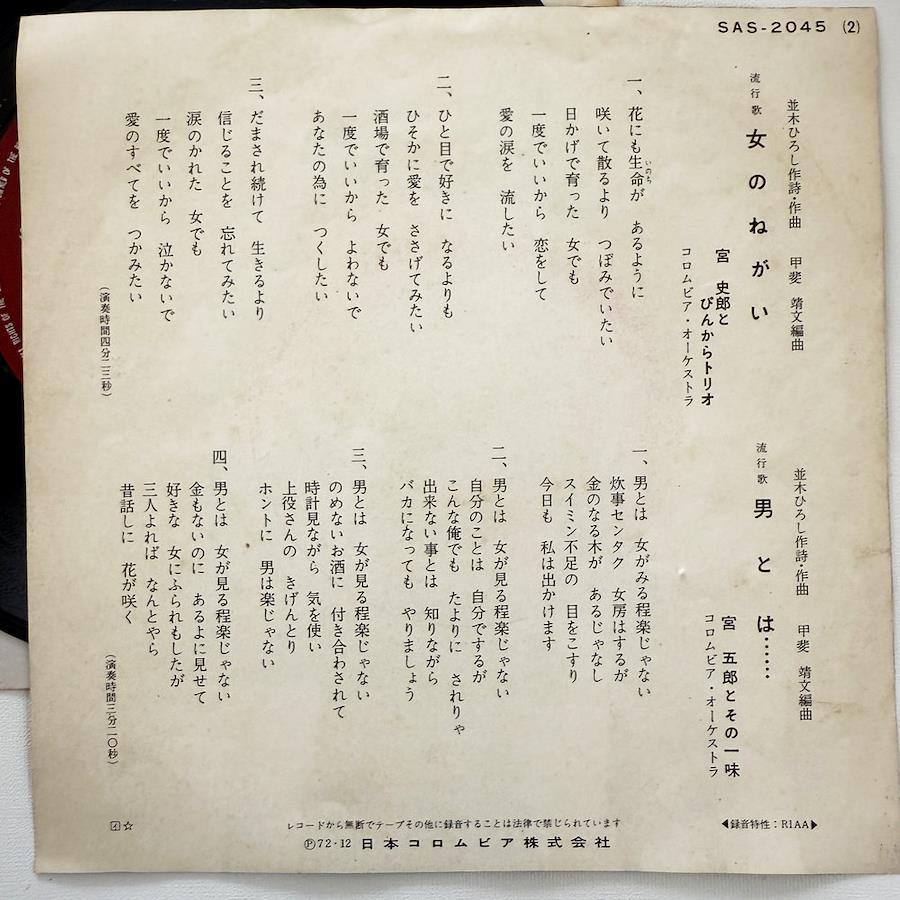 SAS-2045 (2)
並木ひろし作詩・作曲 甲斐 靖文編曲
流行歌 女のねがい
宮 史郎と
ぴんからトリオ
コロムビア・オーケストラ
一、花にも生命が あるように
いのち
咲いて散るより つぼみでいたい
日かげで育った 女でも
一度でいいから 恋をして
愛の涙を 流したい
二、ひと目で好きに なるよりも
ひそかに愛を ささげてみたい
酒場で育った 女でも
一度でいいから よわないで
あなたの為に つくしたい
三、だまされ続けて 生きるより
信じることを 忘れてみたい
涙のかれた 女でも
一度でいいから 泣かないで
愛のすべてを つかみたい
(演奏時間四分二三秒)
並木ひろし作詩・作曲 甲斐 靖文編曲
流行歌 男とは……
宮 五郎とその一味
コロムビア・オーケストラ
一、男とは 女がみる程楽じゃない
炊事センタク 女房はするが
金のなる木が あるじゃなし
スイミン不足の 目をこすり
今日も 私は出かけます
二、男とは 女が見る程楽じゃない
自分のことは 自分でするが
こんな俺でも たよりに されりゃ
出来ない事とは 知りながら
バカになっても やりましょう
三、男とは 女が見る程楽じゃない
のめないお酒に 付き合わされて
時計見ながら 気を使い
上役さんの きげんとり
ホントに 男は楽じゃない
四、男とは 女が見る程楽じゃない
金もないのに あるよに見せて
好きな 女にふられもしたが
三人よれば なんとやら
昔話しに 花が咲く
(演奏時間三分二〇秒)
◀録音特性:RIAA▶
レコードから無断でテープその他に録音することは法律で禁じられています
Ⓟ72・12 日本コロムビア株式会社
☆